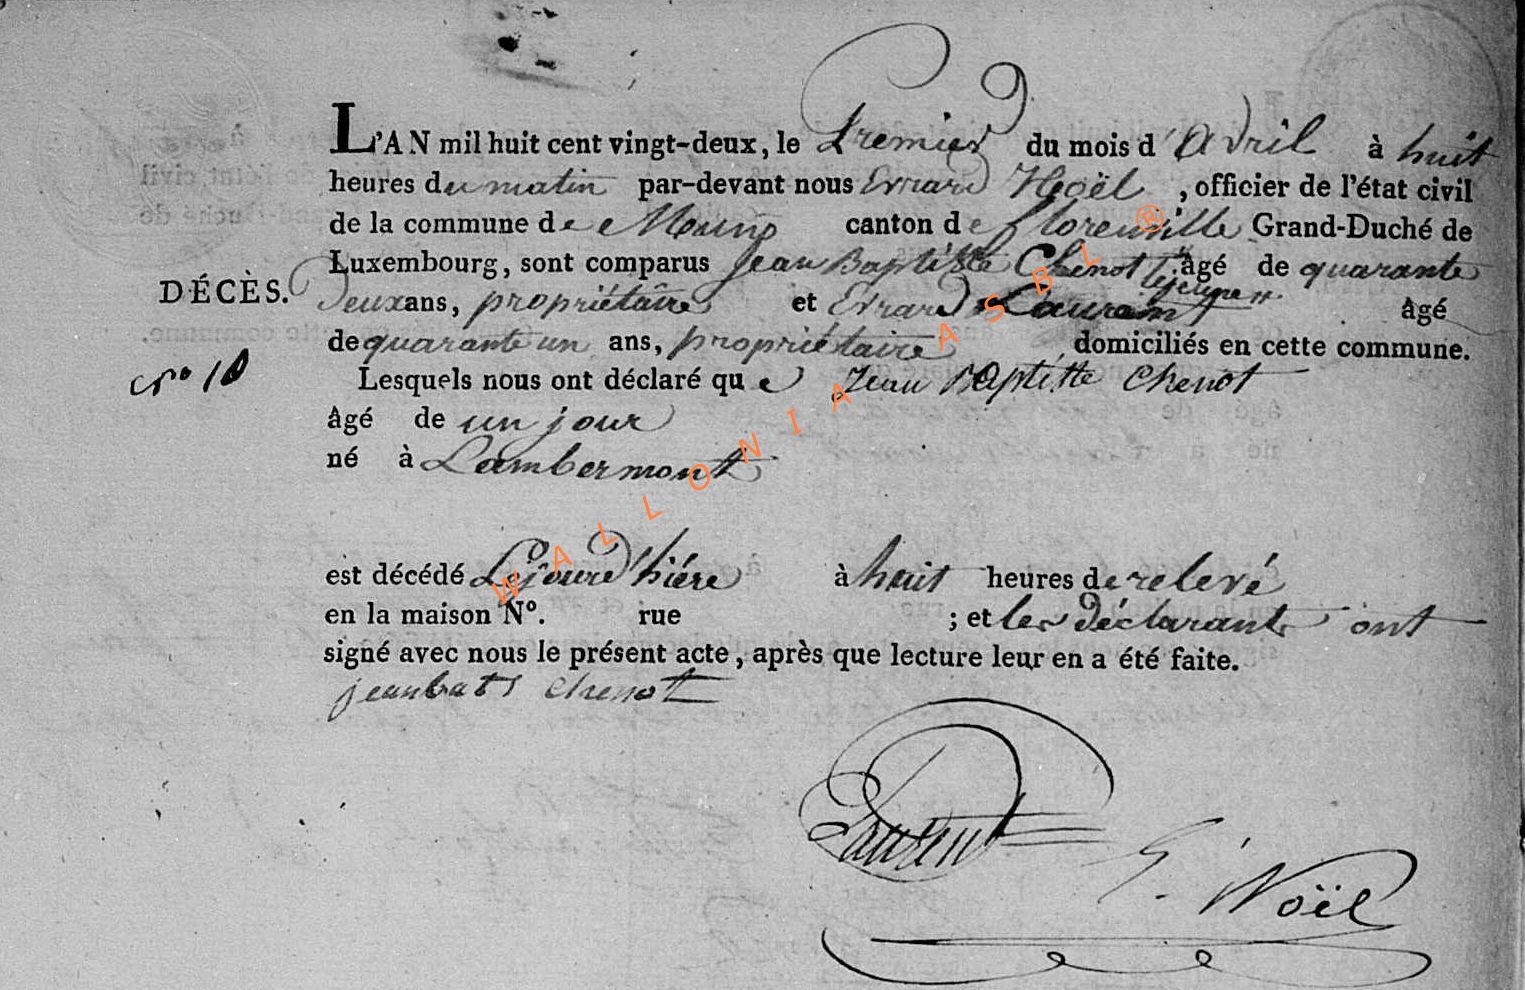 L'AN mil huit cent vingt-deux, le Premier du mois d'Avril à huit
heures du matin par-devant nous Evrard Noël, officier de l'état civil
de la commune de Muno canton de florenville Grand-Duché de
Luxembourg, sont comparus Jean Baptiste Chenot lejeune âgé de quarante
DÉCÈS.
Deux ans, propriétaire et Evrard Laurent âgé
de quarante un ans, propriétaire domiciliés en cette commune.
N° 10
Lesquels nous ont déclaré que Jean Baptiste Chenot
âgé de un jour
né à Lambermont
est décédé Le jourd'hiére à huit heures de relevé
en la maison N°. rue ; et les déclarants ont
signé avec nous le présent acte, après que lecture leur en a été faite.
jeanbats chenot
Laurent
E. Noël
WALLONIA ASBL ®